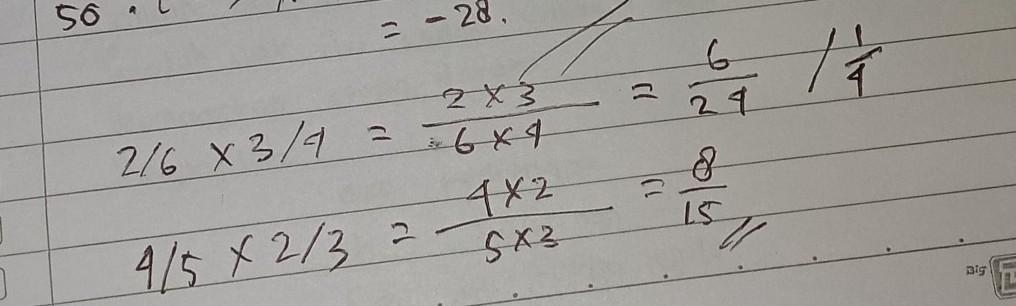 = -28.
2/6 × 3/4 = 2 × 3 / 6 × 4 = 6/24 / 1/4
4/5 × 2/3 = 4 × 2 / 5 × 3 = 8/15 //
Big